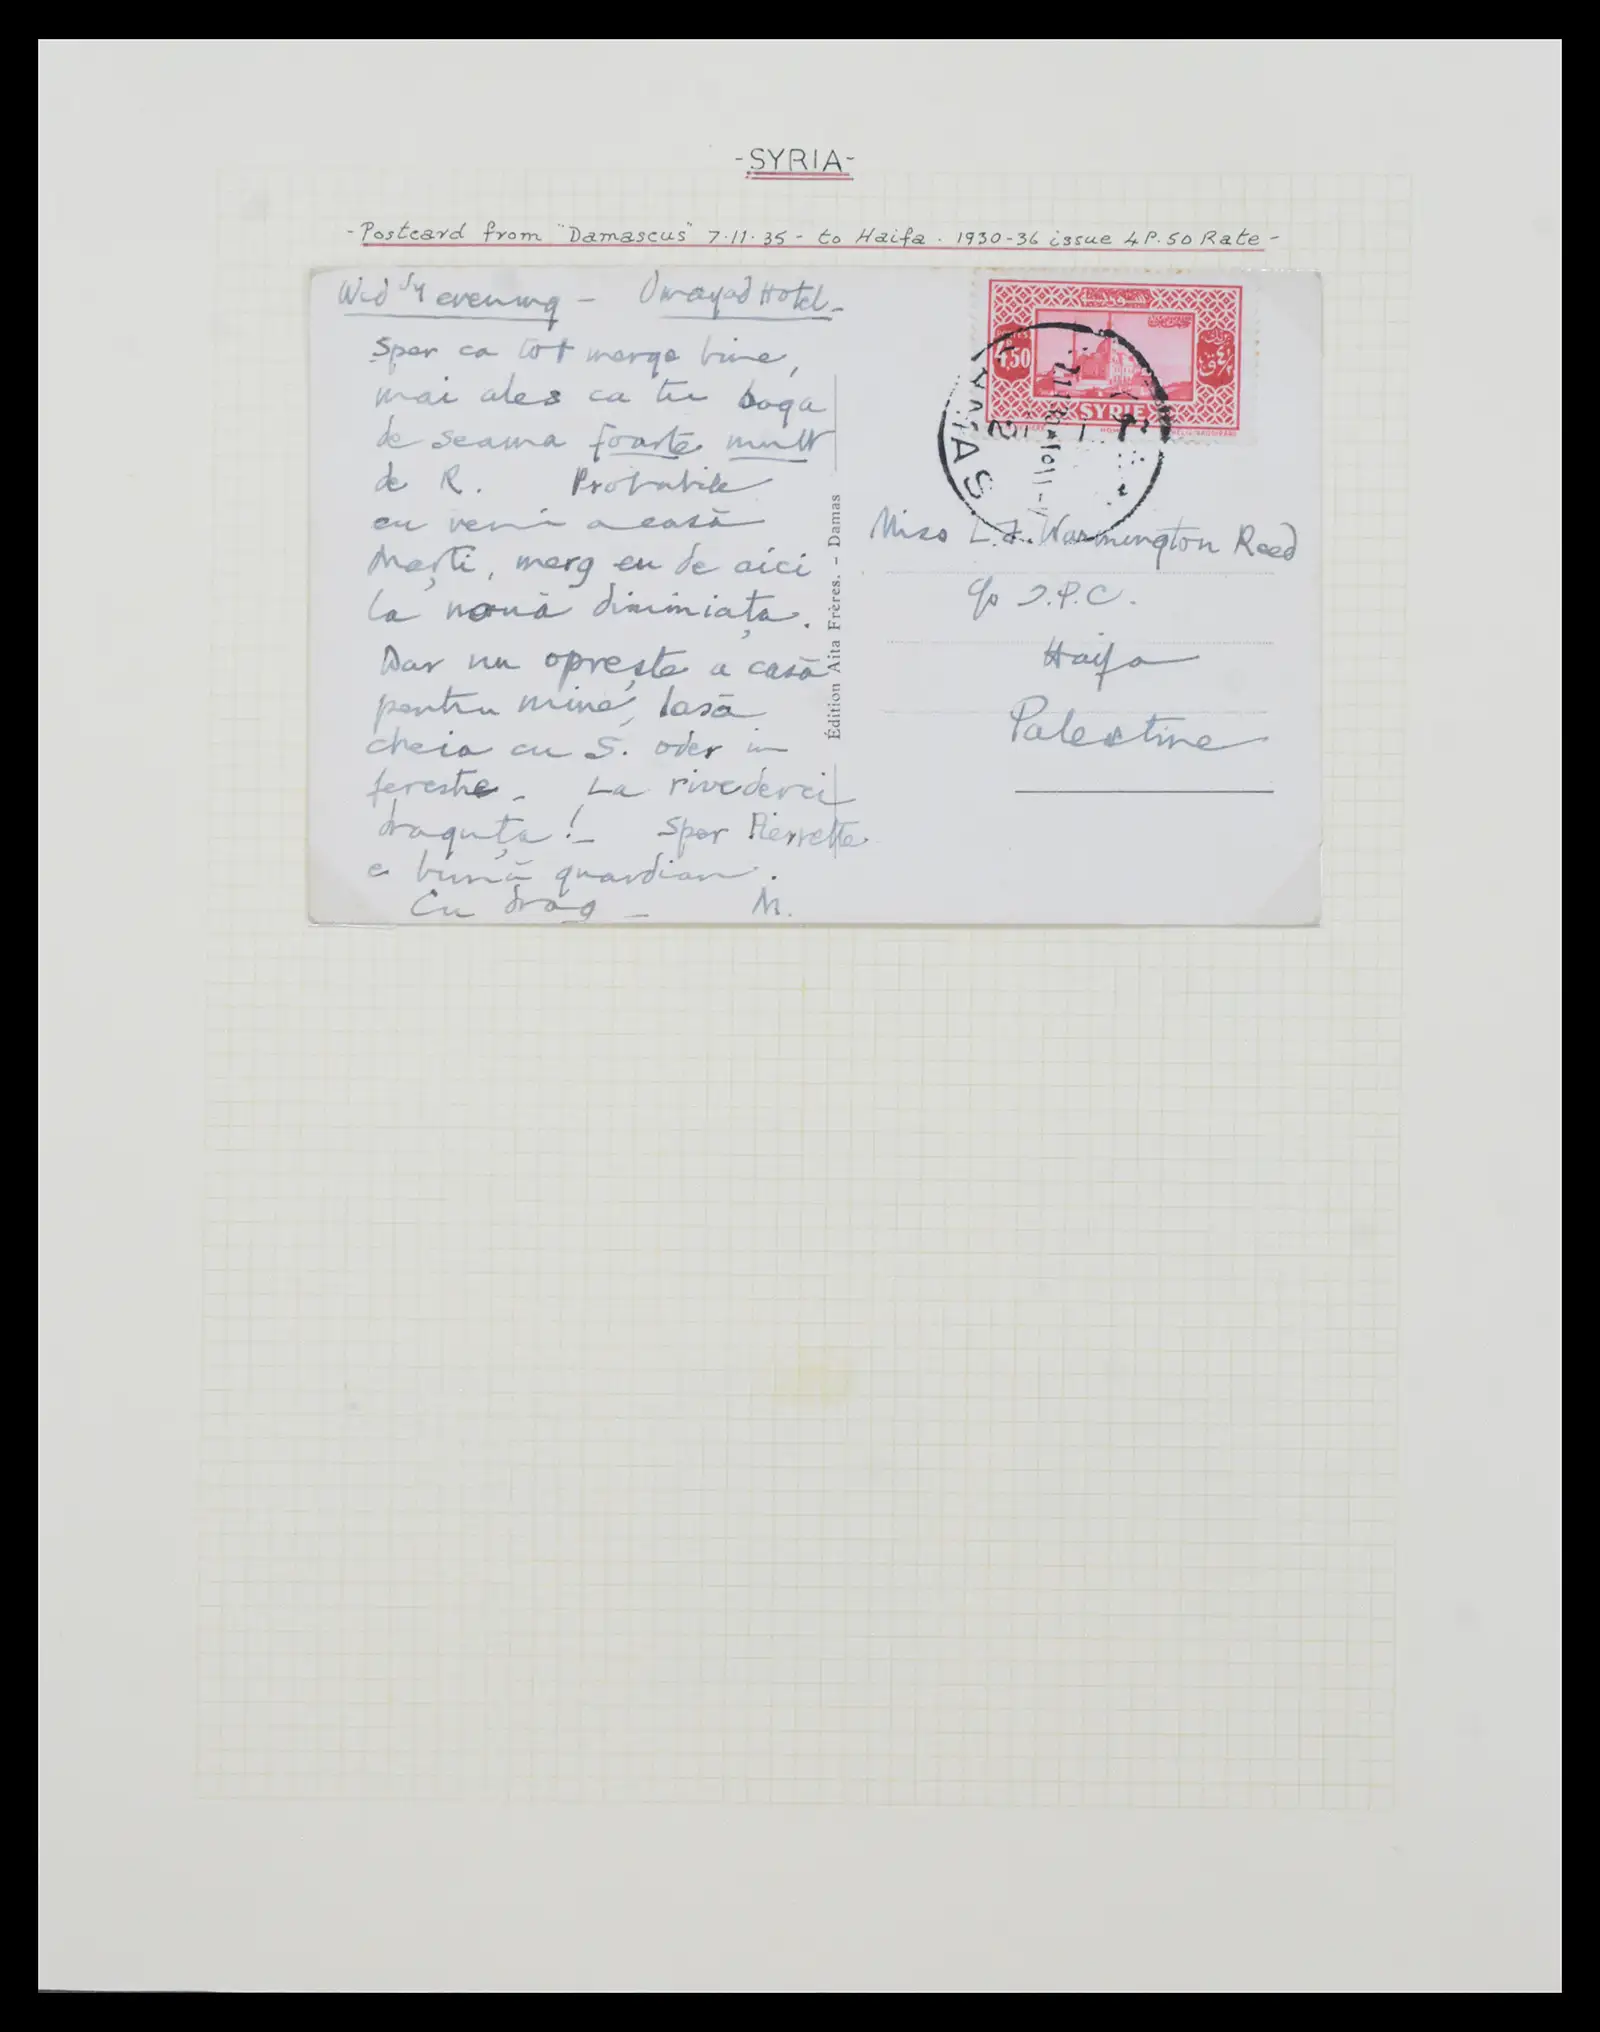 -SYRIA-
-Postcard from "Damascus" 7.11.35 - to Haifa. 1930-36 issue 4P.50 Rate-
Wed'sy evening - Omayad Hotel -
Sper ca tot merge bine,
mai ales ca tu baga
de seama foarte mult
de R. Probabile
eu veni acasă
Marți, merg eu de aici
la nouă diminiața.
Dar nu oprește a casă
pentru mine, lasă
cheia cu S. oder in
fereste - La rivederci
draguța! - Sper Pierrette
e bună guardian.
Cu drag - M.
Édition Aita Frères. - Damas
4,50
SYRIE
DAMAS
Miss L.F. Warmington Reed
c/o I.P.C.
Haifa
Palestine